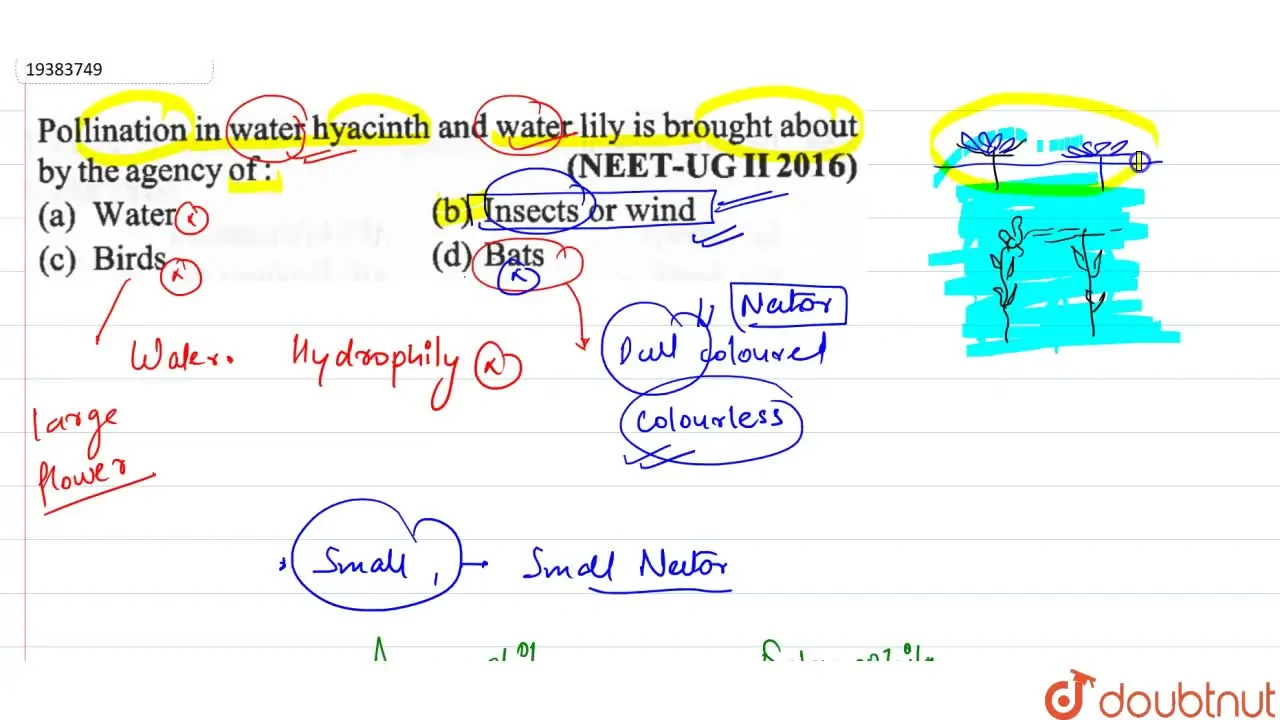 19383749
Pollination in water hyacinth and water lily is brought about
by the agency of : (NEET-UG II 2016)
(a) Water (b) Insects or wind
(c) Birds (d) Bats
Nector
Water. Hydrophily Dull coloured
large colourless
flower
Small, Small Nector
doubtnut